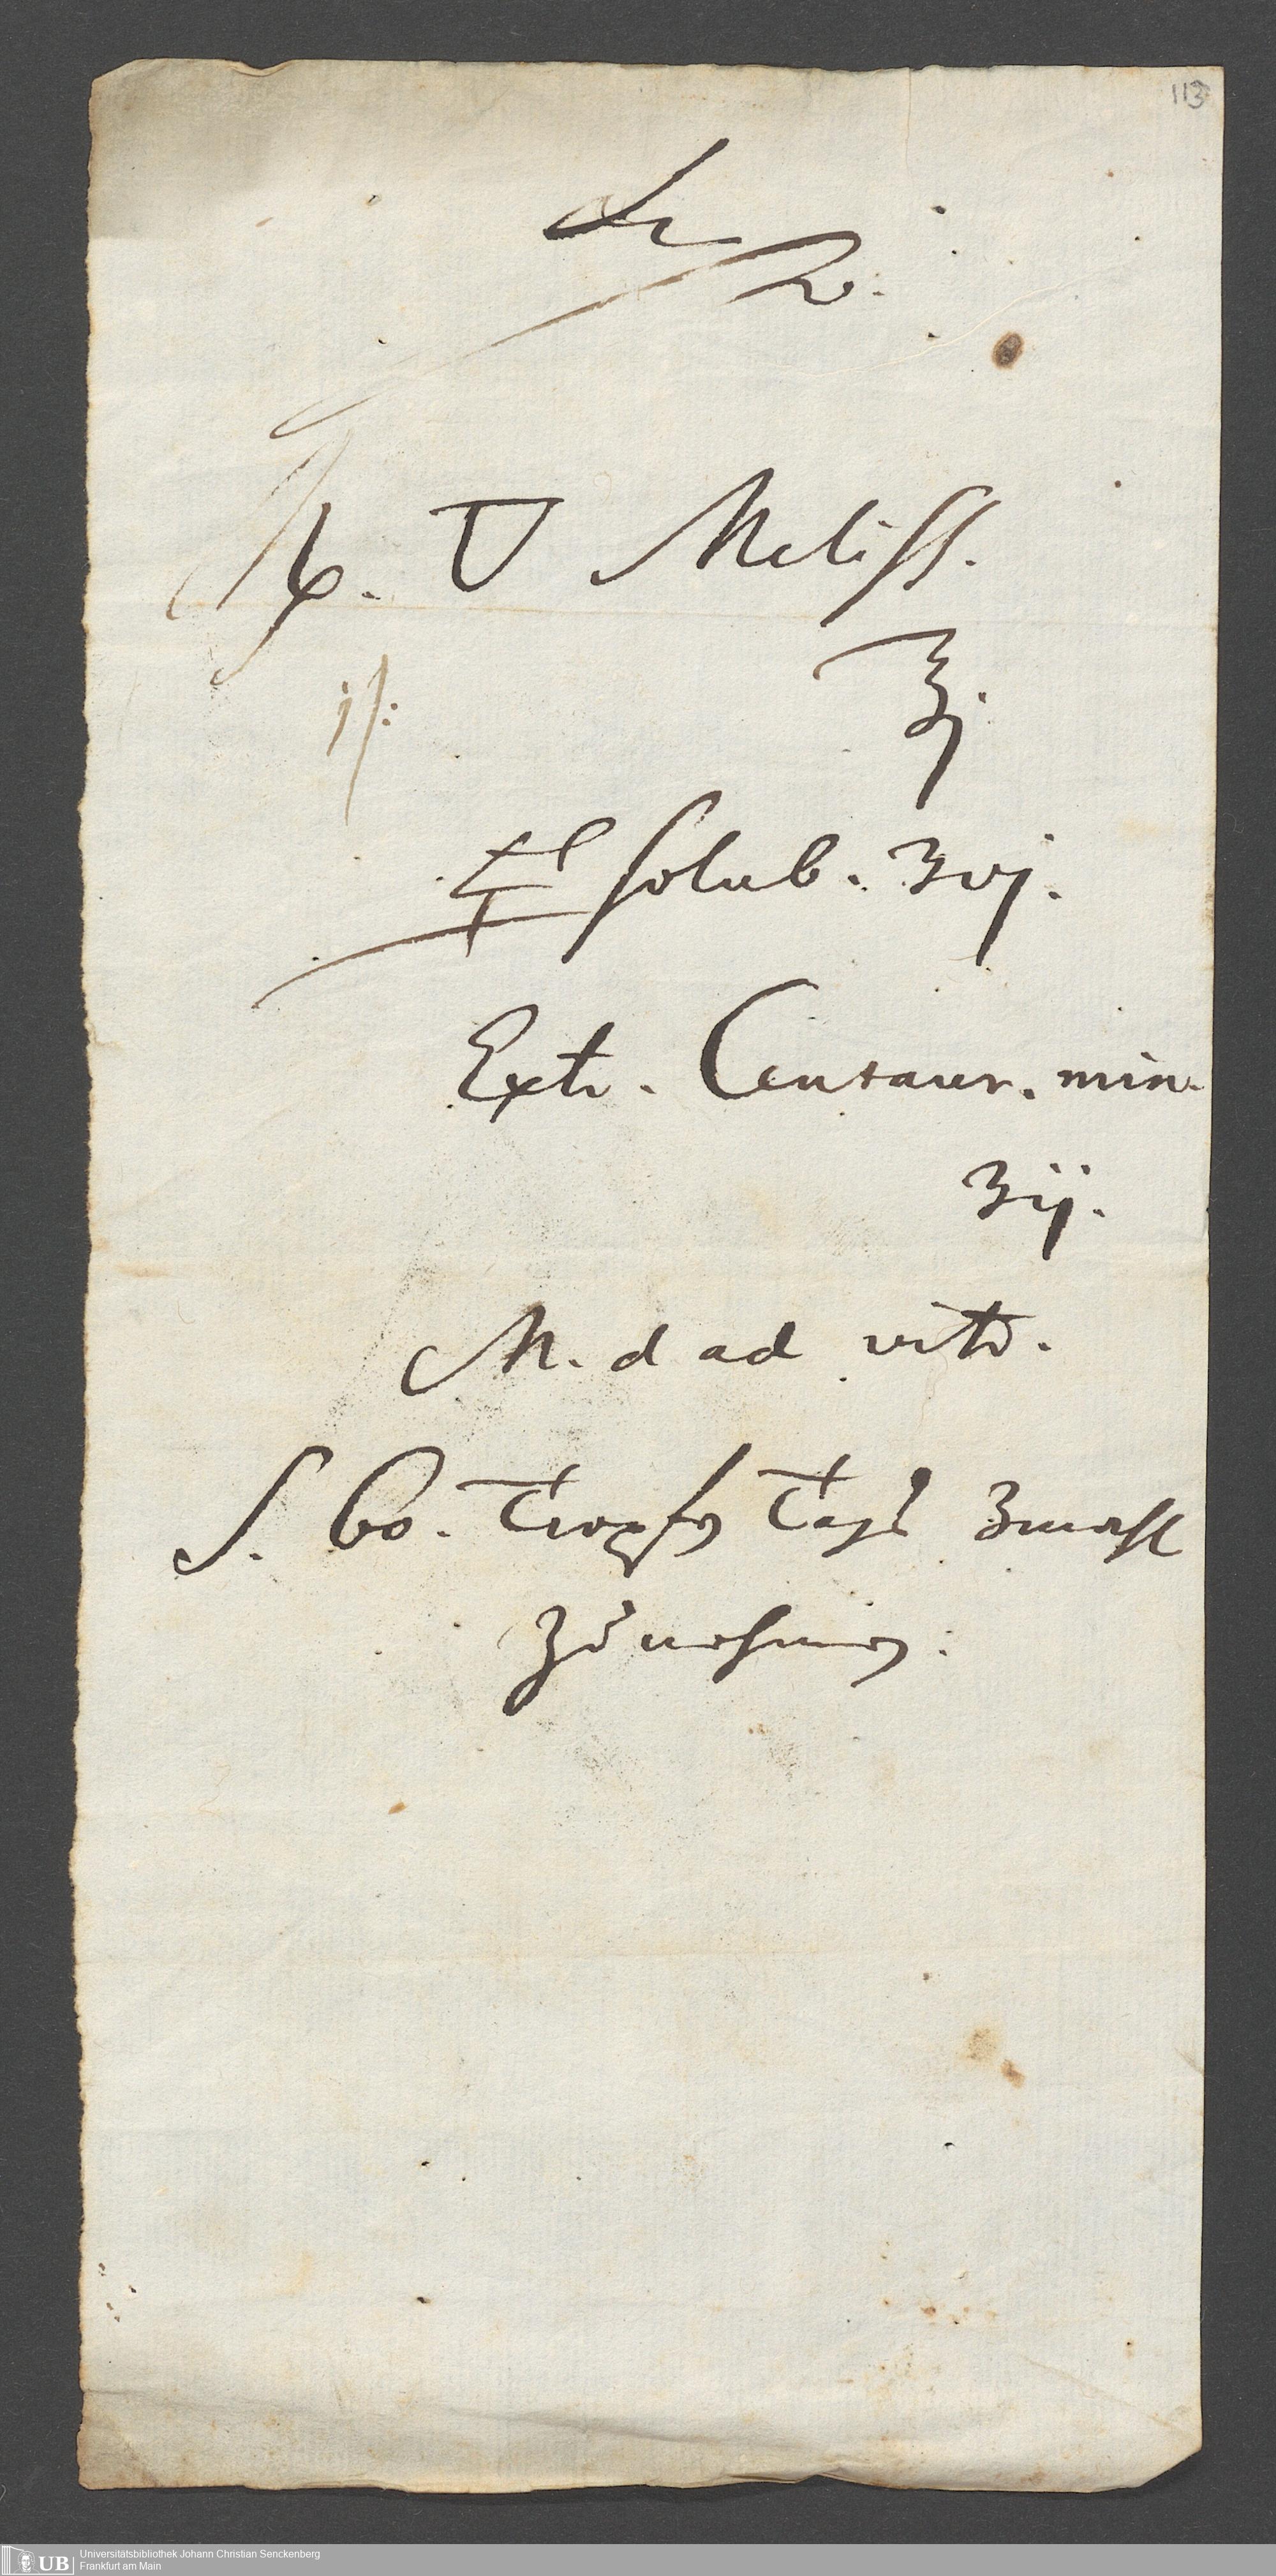 113
℞. 🜄 Meliss.
℥j.
🜿 solub. ʒvj.
Extr. Centaur. min.
ʒij.
M. d ad vitr.
S. 60. Tropfen Tags 3mahl
zu nehmen:
UB Universitätsbibliothek Johann Christian Senckenberg
Frankfurt am Main